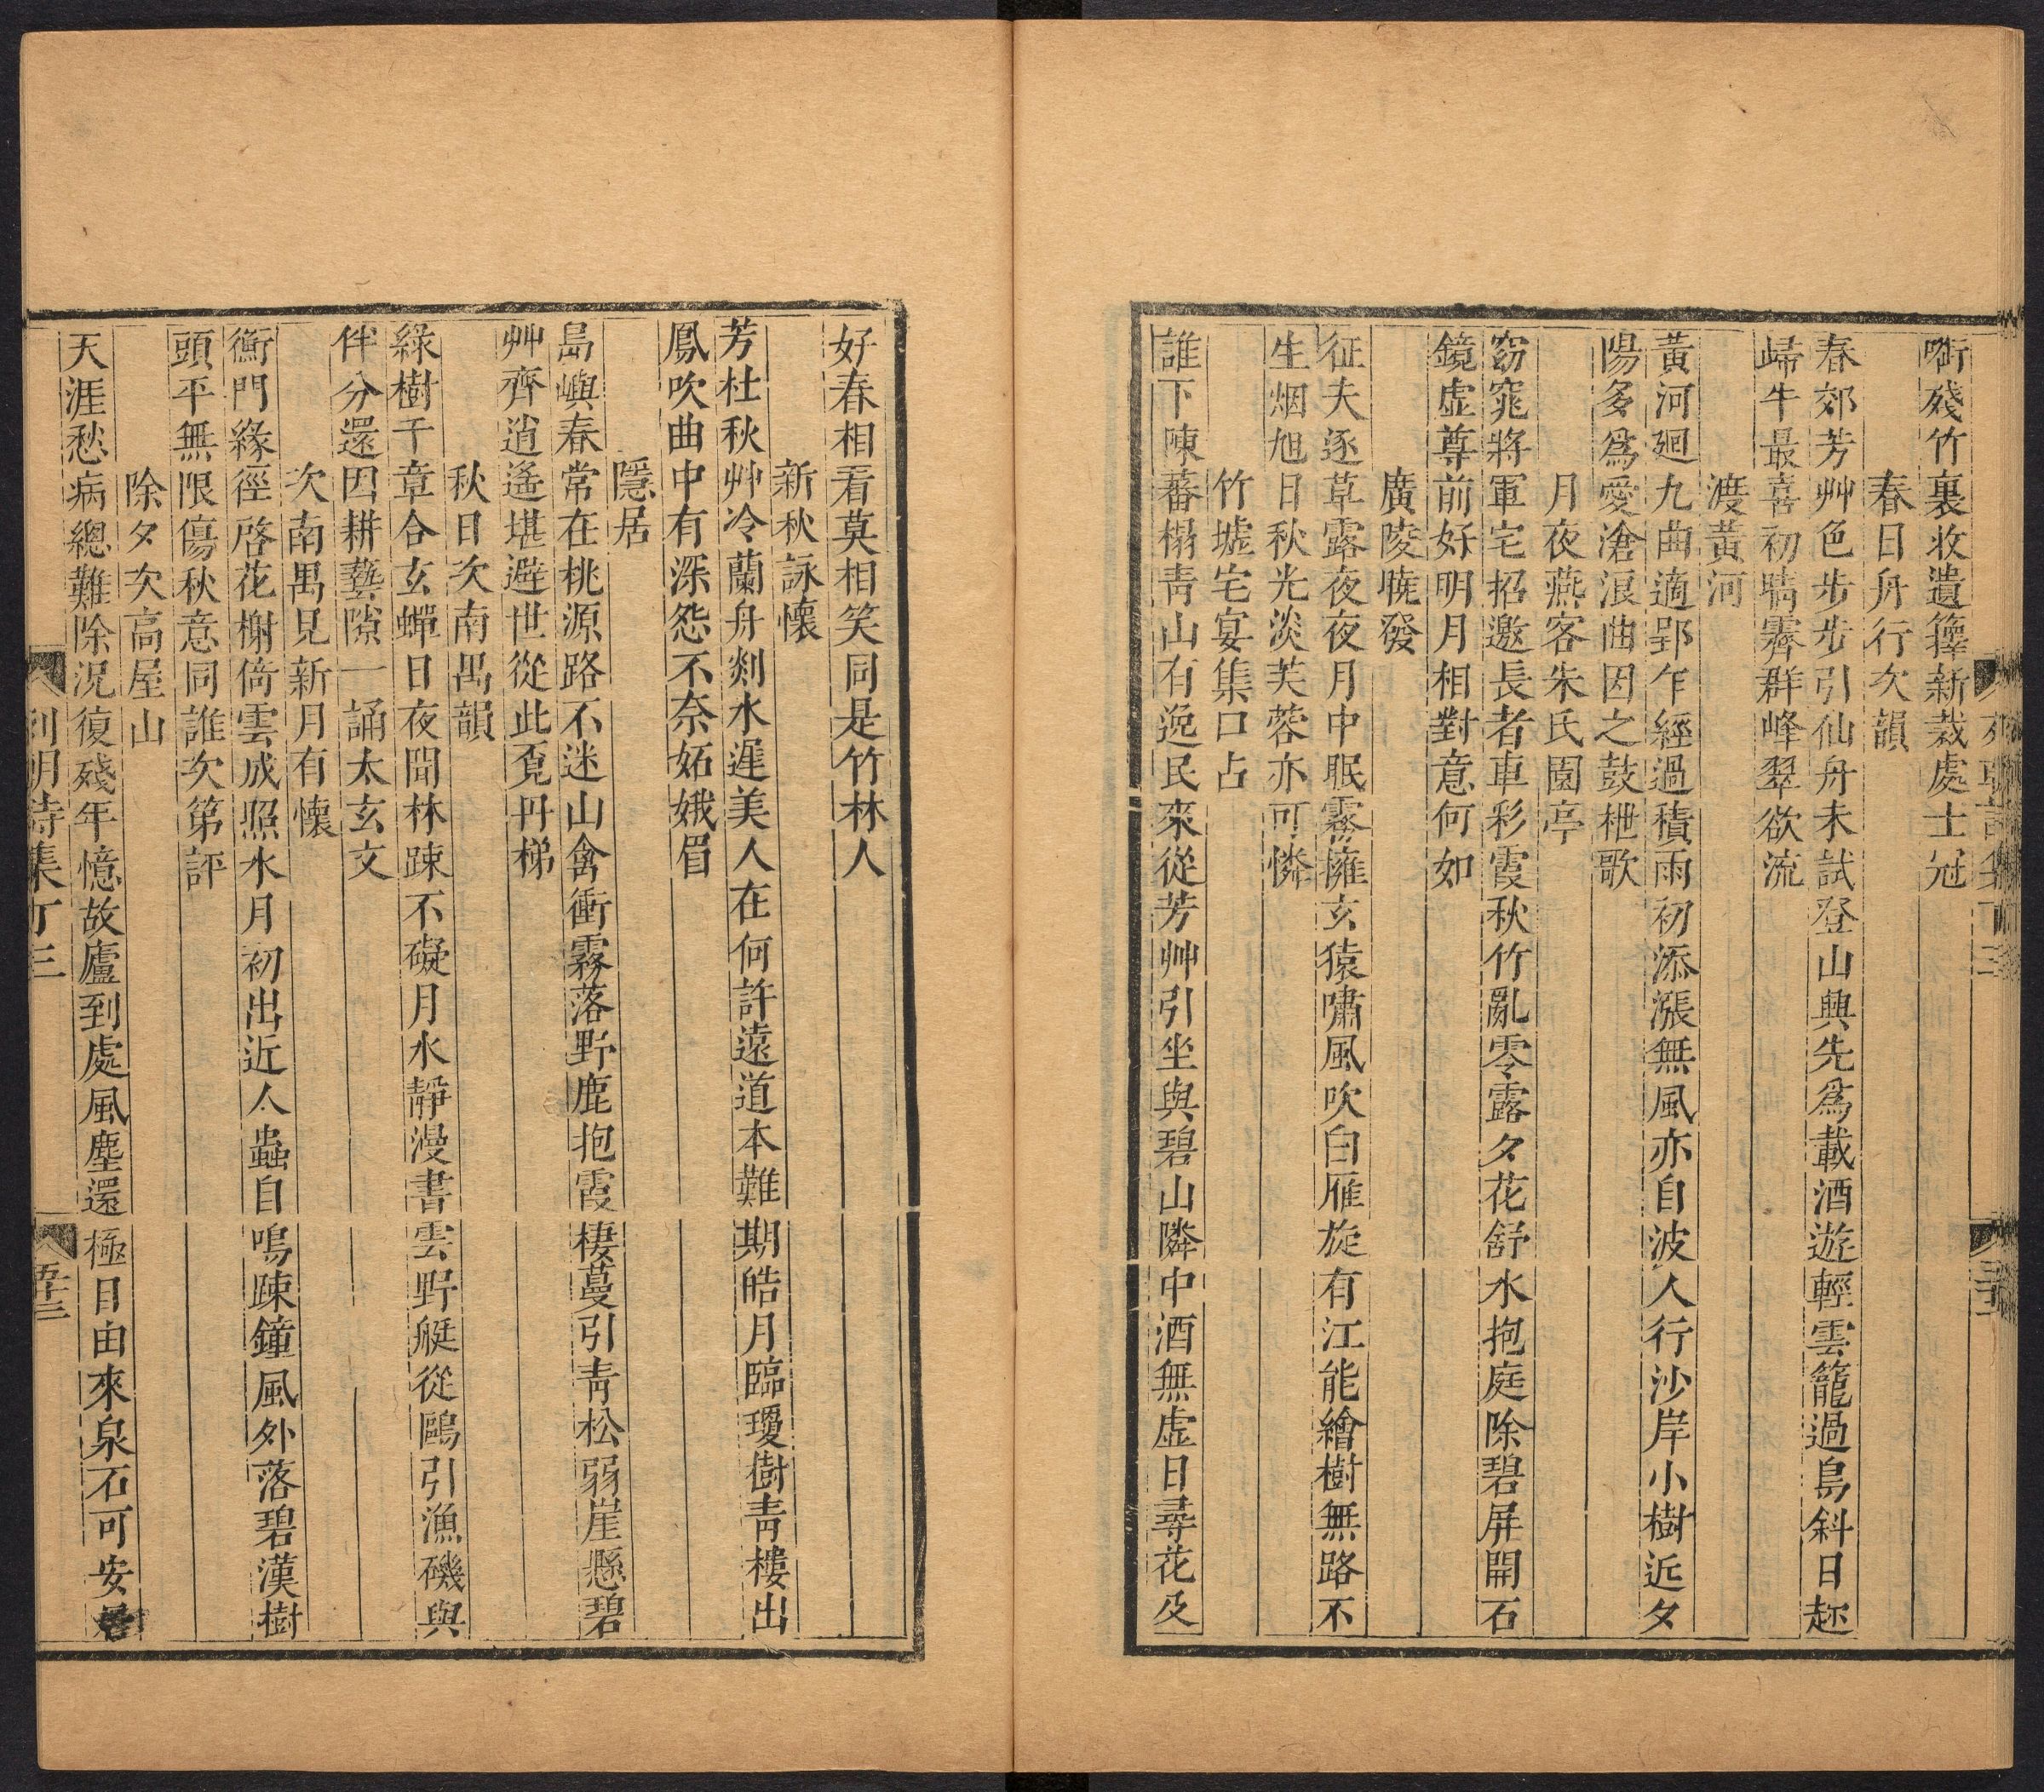 啣殘竹裏收遺籜新裁處士冠
春日舟行次韻
春郊芳艸色步步引仙舟未試登山興先爲載酒遊輕雲籠過鳥斜日趂
歸牛最喜初晴霽群峰翠欲流
渡黃河
黃河廻九曲適郢乍經過積雨初添漲無風亦自波人行沙岸小樹近夕
陽多爲愛滄浪曲因之鼓枻歌
月夜燕客朱氏園亭
窈窕將軍宅招邀長者車彩霞秋竹亂零露夕花舒水抱庭除碧屏開石
鏡虛尊前好明月相對意何如
廣陵曉發
征夫逐草露夜夜月中眠霧擁玄猿嘯風吹白雁旋有江能繪樹無路不
生烟旭日秋光淡芙蓉亦可憐
竹墟宅宴集口占
誰下陳蕃榻靑山有逸民來從芳艸引坐與碧山隣中酒無虛日尋花及
好春相看莫相笑同是竹林人
新秋詠懷
芳杜秋艸冷蘭舟剡水遲美人在何許遠道本難期皓月臨瓊樹靑樓出
鳳吹曲中有深怨不奈妬娥眉
隱居
島嶼春常在桃源路不迷山禽衝霧落野鹿抱霞棲蔓引靑松弱崖懸碧
艸齊逍遙堪避世從此覔丹梯
秋日次南禺韻
綠樹千章合玄蟬日夜聞林疎不礙月水靜漫書雲野艇從鷗引漁磯與
伴分還因耕藝隙一誦太玄文
次南禺見新月有懷
衡門緣徑啓花榭倚雲成照水月初出近人蟲自鳴疎鐘風外落碧漢樹
頭平無限傷秋意同誰次第評
除夕次高屋山
天涯愁病總難除況復殘年憶故廬到處風塵還極目由來泉石可安
列朝詩集丁三